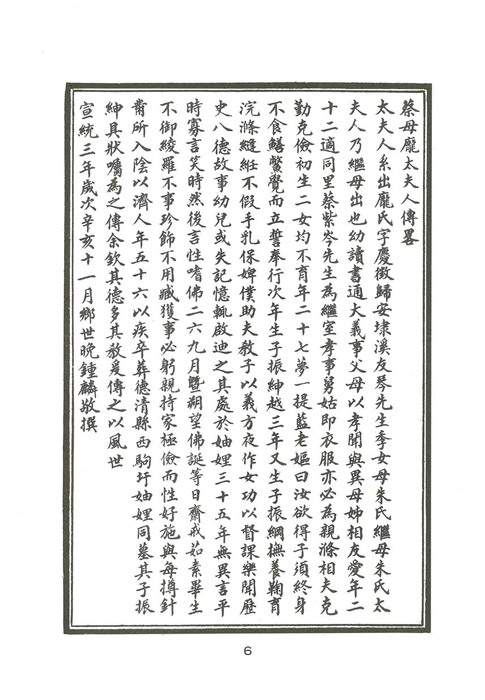 蔡母龐太夫人傳畧
太夫人系出龐氏字慶徵歸安埭溪友琴先生季女母朱氏繼母朱氏太
夫人乃繼母出也幼讀書通大義事父母以孝聞與異母姊相友愛年二
十二適同里蔡紫岑先生為繼室孝事舅姑即衣服亦必為親滌相夫克
勤克儉初生二女均不育年二十七夢一提藍老嫗曰汝欲得子須終身
不食鱔鱉覺而立誓奉行次年生子振紳越三年又生子振綱撫養鞠育
浣滌縫紝不假手乳保婢僕助夫教子以義方夜作女功以督課樂聞歷
史八德故事幼兒或失記憶輒啟迪之其處於妯娌三十五年無異言平
時寡言笑時然後言性嗜佛二六九月暨朔望佛誕等日齋戒茹素畢生
不御綾羅不事珍飾不用臧獲事必躬親持家極儉而性好施與每摶針
黹所入陰以濟人年五十六以疾卒葬德清縣西駒圩妯娌同墓其子振
紳具狀囑為之傳余欽其德多其教爰傳之以風世
宣統三年歲次辛亥十一月鄉世晚鍾麟敬撰
6